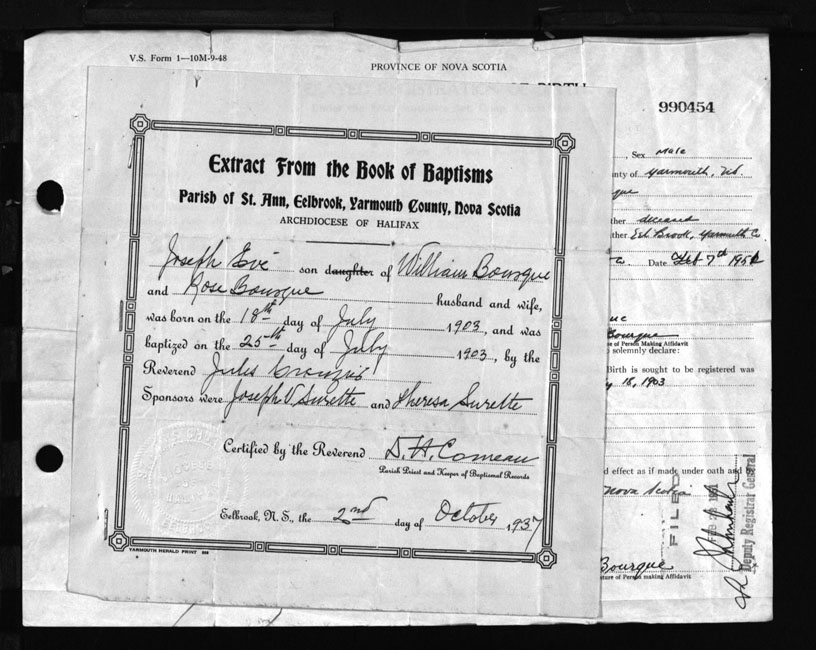 V.S. Form 1—10M-9-48
PROVINCE OF NOVA SCOTIA
990454
Extract From the Book of Baptisms
Parish of St. Ann, Eelbrook, Yarmouth County, Nova Scotia
ARCHDIOCESE OF HALIFAX
Joseph son daughter of William Bourque
and Rose Bourque husband and wife,
was born on the 18th day of July 1903, and was
baptized on the 25th day of July 1903, by the
Reverend Jules
Sponsors were Joseph V Surette and Theresa Surette
Certified by the Reverend D. H. Comeau
Parish Priest and Keeper of Baptismal Records
Eelbrook, N. S., the 2nd day of October 1937
YARMOUTH HERALD PRINT
, Sex Male
nty of Yarmouth, N.S.
que
ther deceased
ther Eel Brook, Yarmouth Co
Date Feb 7th 195
Bourque
e of Person Making Affidavit
o solemnly declare:
Birth is sought to be registered was
y 18, 1903
d effect as if made under oath and
Nova Scotia
FILED
Deputy Registrar General
Bourque
ature of Person making Affidavit